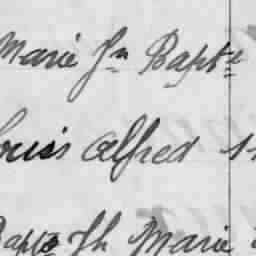 Marie Jn Bapte
Louis Alfred
Bapte Jh Marie